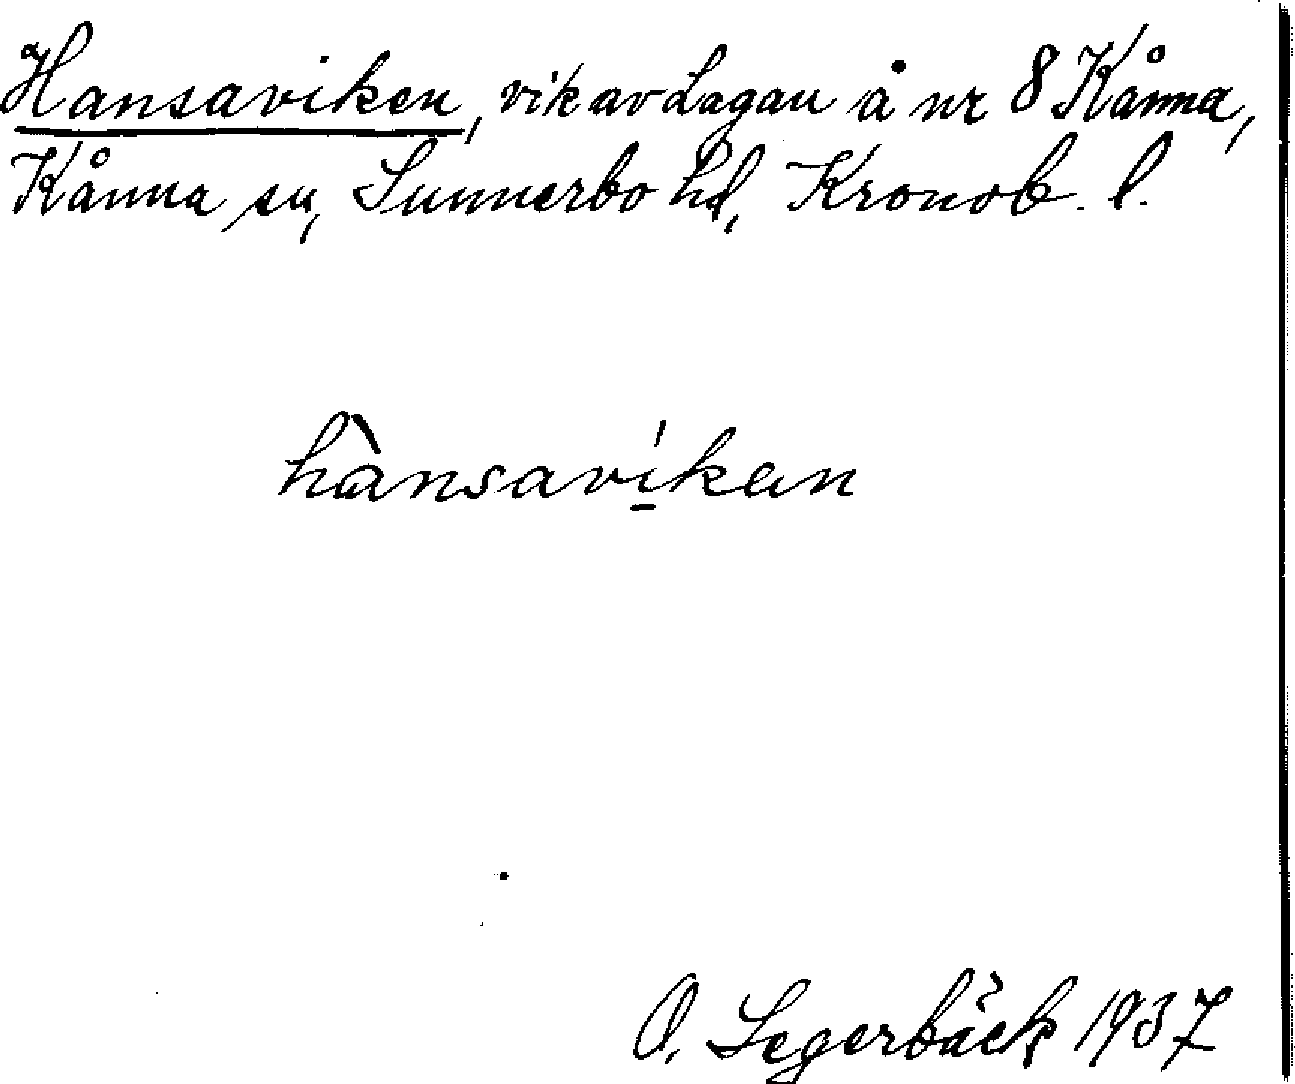 Hansaviken, vik av Lagan å nr 8 Kånna,
Kånna sn, Sunnerbo hd, Kronob. l.
hànsavíkan
O. Segerbäck 1937